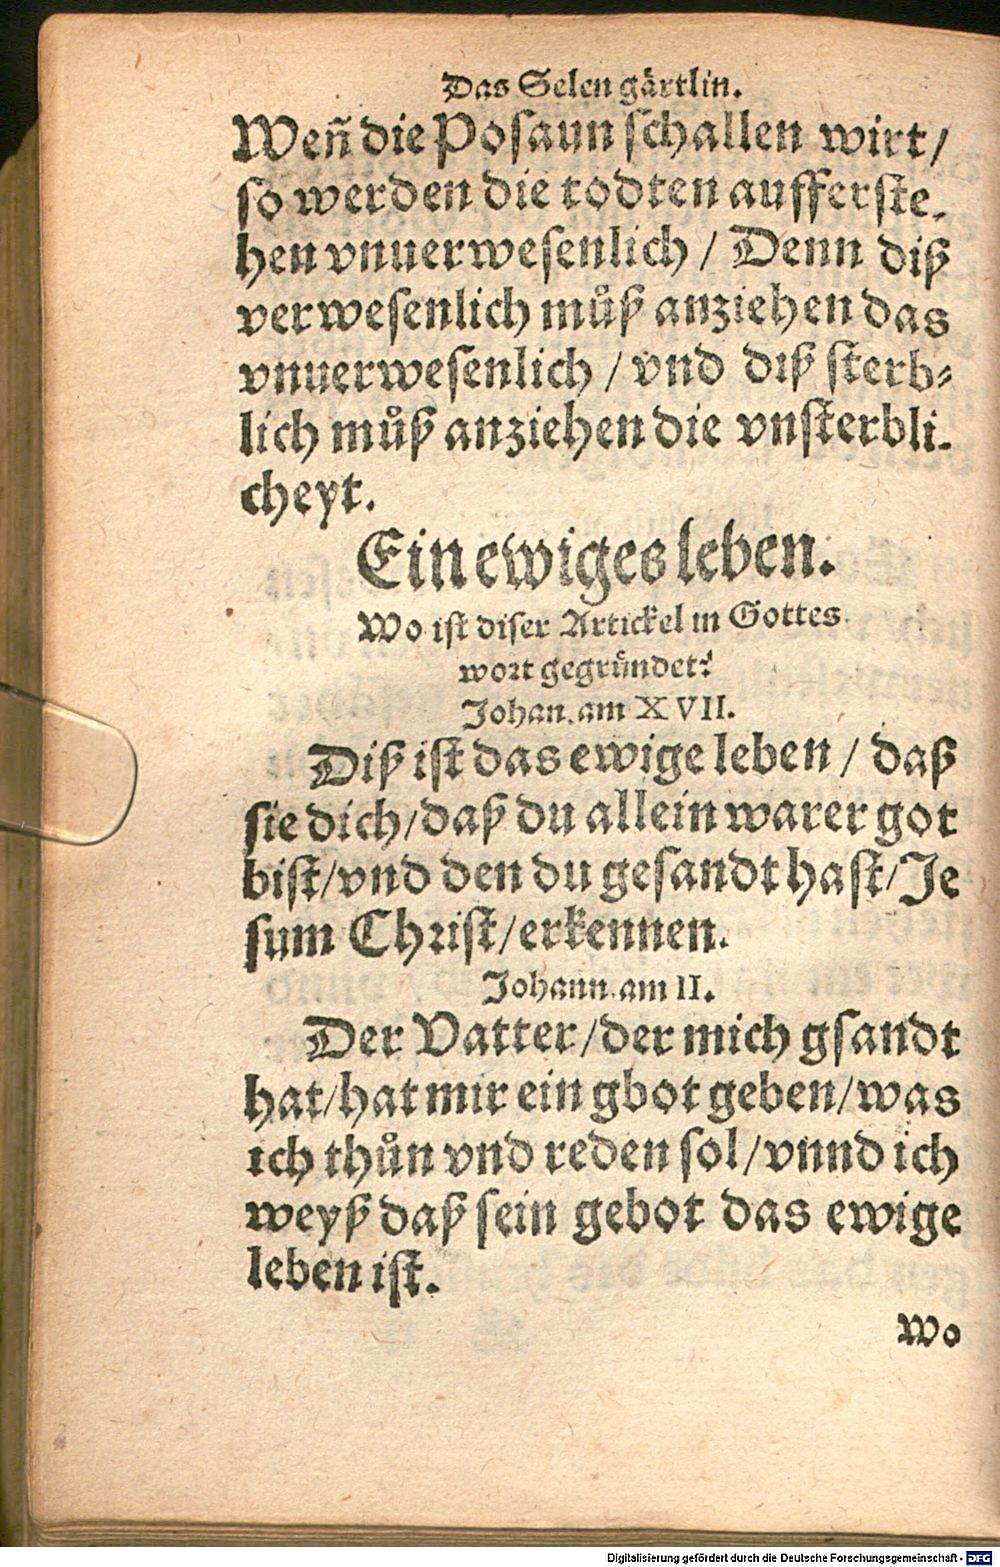 Das Selen gärtlin.
Weñ die Posaun schallen wirt/
so werden die todten aufferste-
hen vnuerwesenlich / Denn diß
verwesenlich můß anziehen das
vnuerwesenlich / vnd diß sterb-
lich můß anziehen die vnsterbli-
cheyt.
Ein ewiges leben.
Wo ist diser Artickel in Gottes
wort gegründet?
Johan. am XVII.
Diß ist das ewige leben / daß
sie dich/daß du allein warer got
bist/vnd den du gesandt hast/Je
sum Christ/erkennen.
Johann. am II.
Der Vatter/der mich gsandt
hat/hat mir ein gbot geben/was
ich thůn vnd reden sol/vnnd ich
weyß daß sein gebot das ewige
leben ist.
Wo
Digitalisierung gefördert durch die Deutsche Forschungsgemeinschaft - DFG